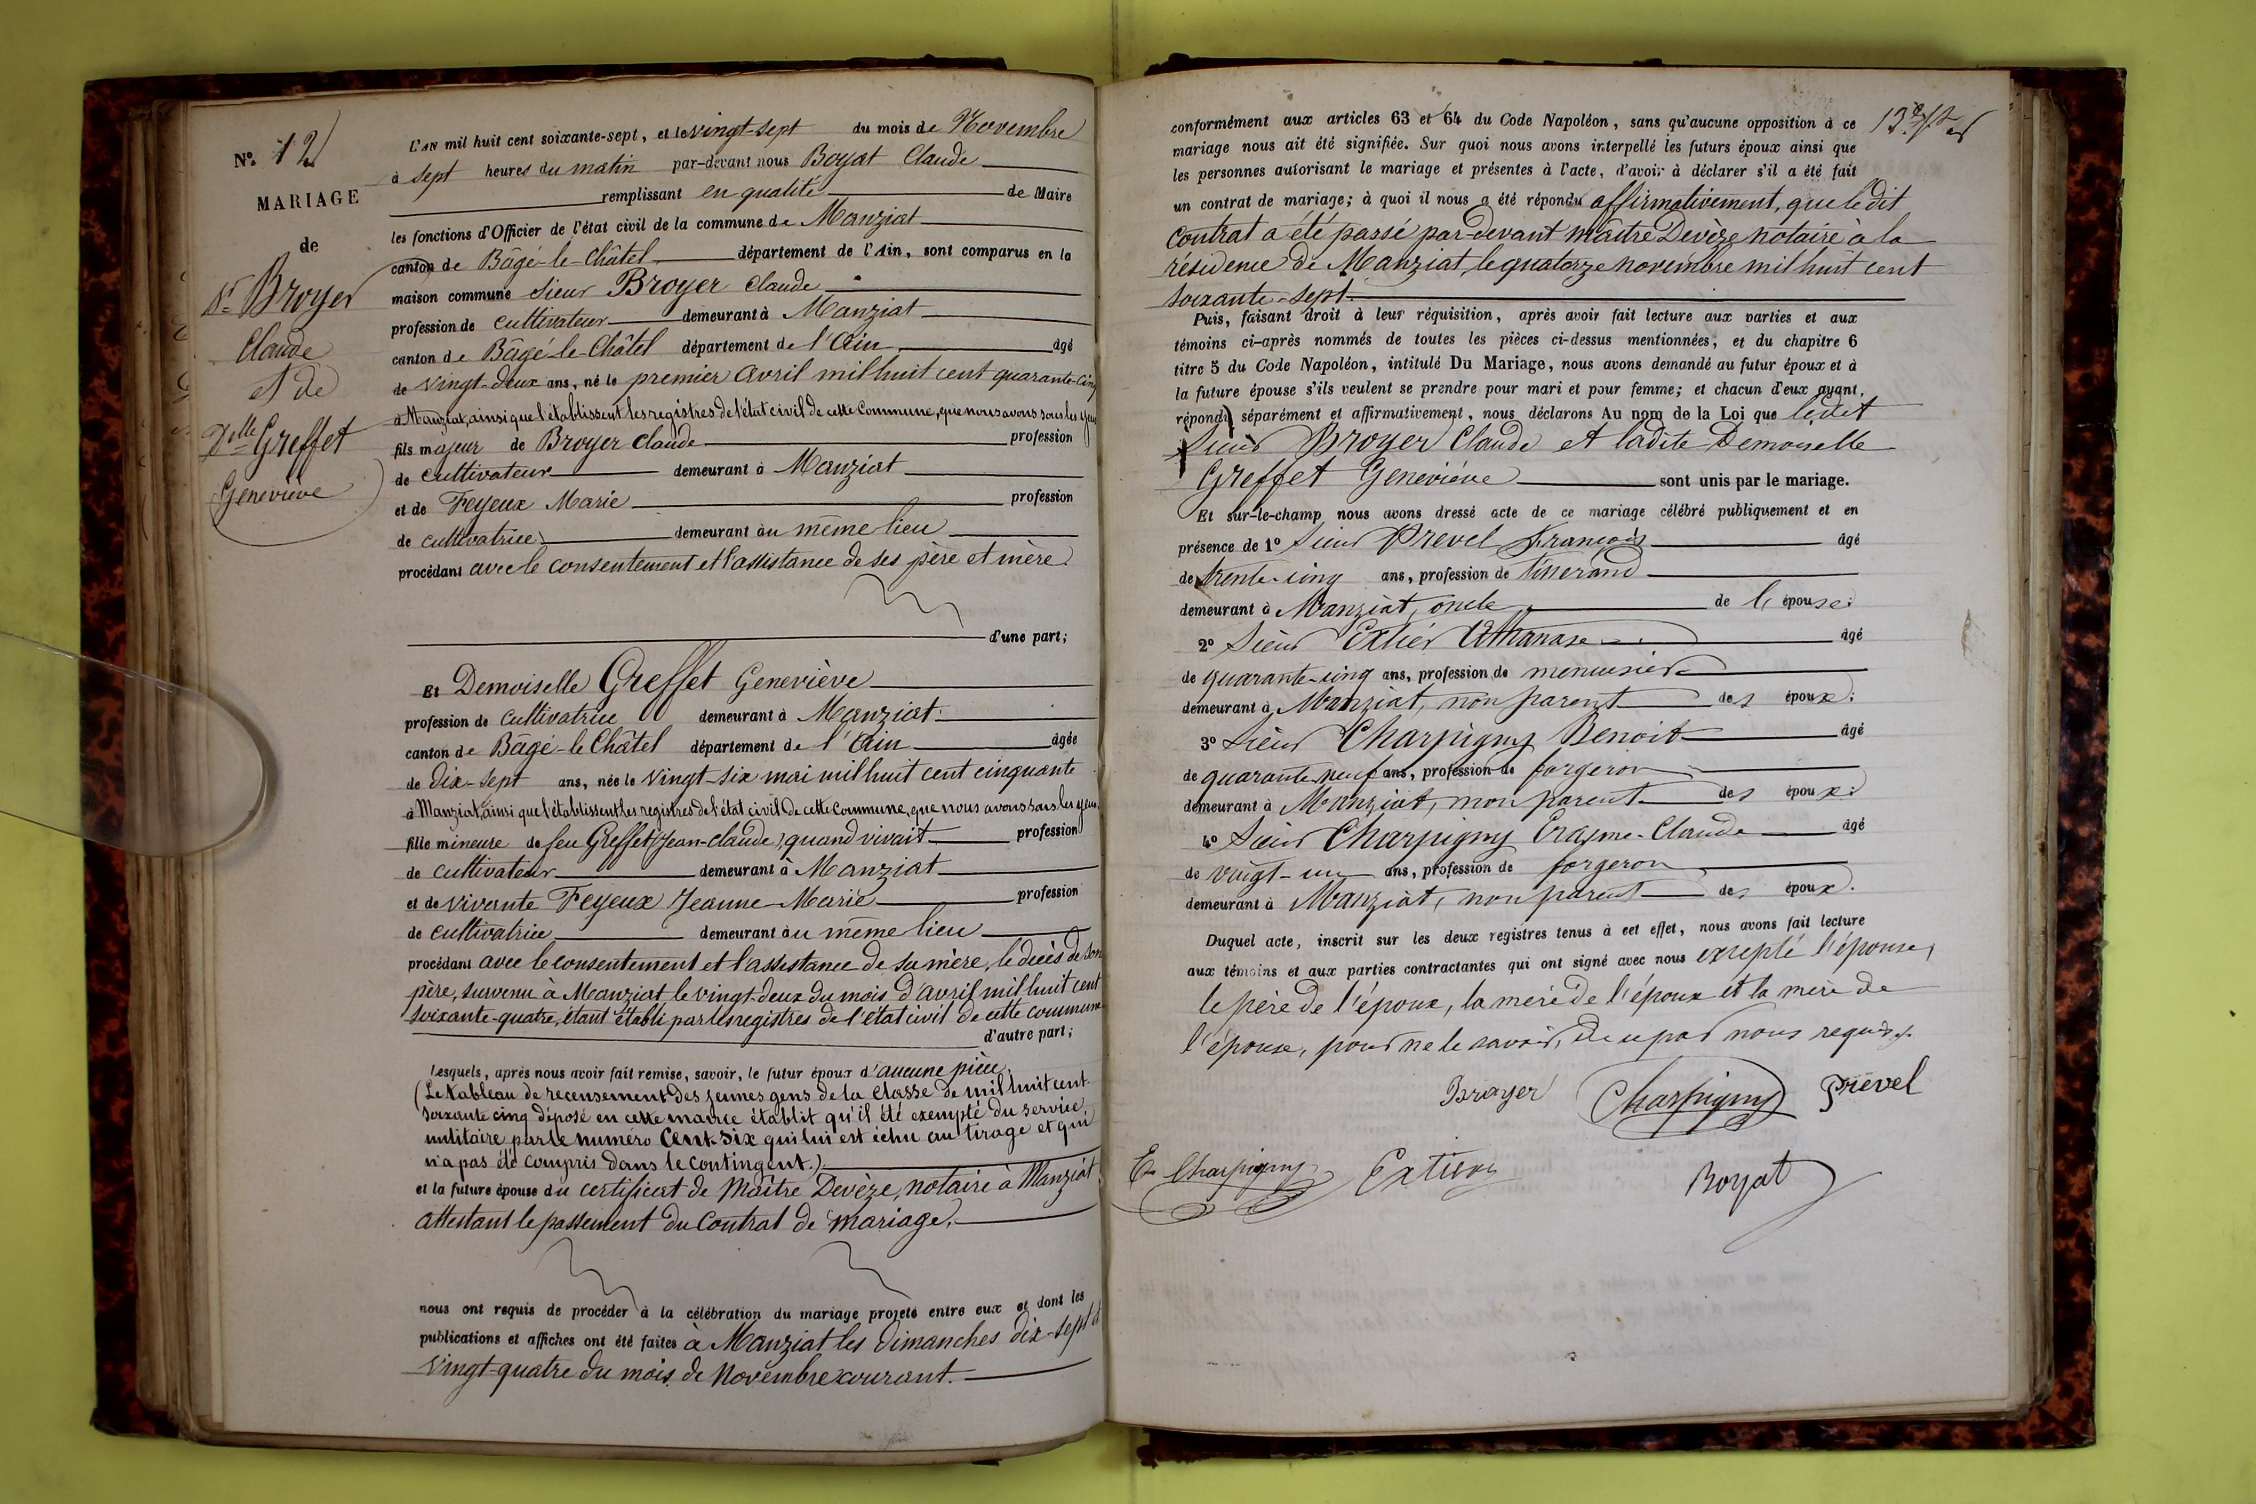 N°. 12
MARIAGE
de
Sr Broyer
Claude
et de
Dlle Greffet
Geneviève
L'AN mil huit cent soixante-sept, et le vingt-sept du mois de Novembre
à sept heures du matin par-devant nous Boyat Claude
remplissant en qualité de Maire
les fonctions d'Officier de l'état civil de la commune de Manziat
canton de Bâgé-le-Châtel département de l'Ain, sont comparus en la
maison commune Sieur Broyer Claude
profession de cultivateur demeurant à Manziat
canton de Bâgé-le-Châtel département de l'Ain âgé
de vingt-deux ans, né le premier Avril mil huit cent quarante-cinq
à Manziat, ainsi que l'établissent les registres de l'état civil de cette Commune, que nous avons sous les yeux
fils majeur de Broyer Claude profession
de cultivateur demeurant à Manziat
et de Feyeux Marie profession
de cultivatrice demeurant au même lieu
procédant avec le consentement et l'assistance de ses père et mère.
d'une part;
Et Demoiselle Greffet Geneviève
profession de cultivatrice demeurant à Manziat
canton de Bâgé-le-Châtel département de l'Ain âgée
de dix-sept ans, née le vingt-six mai mil huit cent cinquante
à Manziat, ainsi que l'établissent les registres de l'état civil de cette commune, que nous avons sous les yeux
fille mineure de feu Greffet (Jean-Claude), quand vivait profession
de cultivateur demeurant à Manziat
et de vivante Feyeux Jeanne-Marie profession
de cultivatrice demeurant au même lieu
procédant avec le consentement et l'assistance de sa mère, le décès de son
père, survenu à Manziat le vingt-deux du mois d'avril mil huit cent
soixante-quatre, étant établi par les registres de l'état civil de cette commune
d'autre part;
Lesquels, après nous avoir fait remise, savoir, le futur époux d'aucune pièce.
(Le tableau de recensement des jeunes gens de la classe de mil huit cent
soixante cinq déposé en cette mairie établit qu'il été exempté du service
militaire par le numéro cent-six qui lui est échu au tirage et qui
n'a pas été compris dans le contingent.)
et la future épouse du certificat de Maître Devèze, notaire à Manziat
attestant le passement du contrat de mariage.
nous ont requis de procéder à la célébration du mariage projeté entre eux et dont les
publications et affiches ont été faites à Manziat les Dimanches dix-sept et
vingt-quatre du mois de Novembre courant.
conformément aux articles 63 et 64 du Code Napoléon, sans qu'aucune opposition à ce
mariage nous ait été signifiée. Sur quoi nous avons interpellé les futurs époux ainsi que
les personnes autorisant le mariage et présentes à l'acte, d'avoir à déclarer s'il a été fait
un contrat de mariage; à quoi il nous a été répondu affirmativement, que ledit
contrat a été passé par-devant maître Devèze notaire à la
résidence de Manziat, le quatorze novembre mil huit cent
soixante-sept.
Puis, faisant droit à leur réquisition, après avoir fait lecture aux parties et aux
témoins ci-après nommés de toutes les pièces ci-dessus mentionnées, et du chapitre 6
titre 5 du Code Napoléon, intitulé Du Mariage, nous avons demandé au futur époux et à
la future épouse s'ils veulent se prendre pour mari et pour femme; et chacun d'eux ayant
répondu séparément et affirmativement, nous déclarons Au nom de la Loi que ledit
Sieur Broyer Claude et ladite Demoiselle
Greffet Geneviève sont unis par le mariage.
Et sur-le-champ nous avons dressé acte de ce mariage célébré publiquement et en
présence de 1° Sieur Prevel François âgé
de trente-cinq ans, profession de tisserand
demeurant à Manziat, oncle de l'épouse.
2° Sieur Extier Athanase âgé
de quarante-cinq ans, profession de menuisier
demeurant à Manziat, non parent des époux.
3° Sieur Charpigny Benoit âgé
de quarante-neuf ans, profession de forgeron
demeurant à Manziat, non parent des époux.
4° Sieur Charpigny Erasme-Claude âgé
de vingt-un ans, profession de forgeron
demeurant à Manziat, non parent des époux.
Duquel acte, inscrit sur les deux registres tenus à cet effet, nous avons fait lecture
aux témoins et aux parties contractantes qui ont signé avec nous excepté l'épouse,
le père de l'époux, la mère de l'époux et la mère de
l'épouse, pour ne le savoir, de ce par nous requis.
Broyer Charpigny Prevel
Er Charpigny Extier Boyat